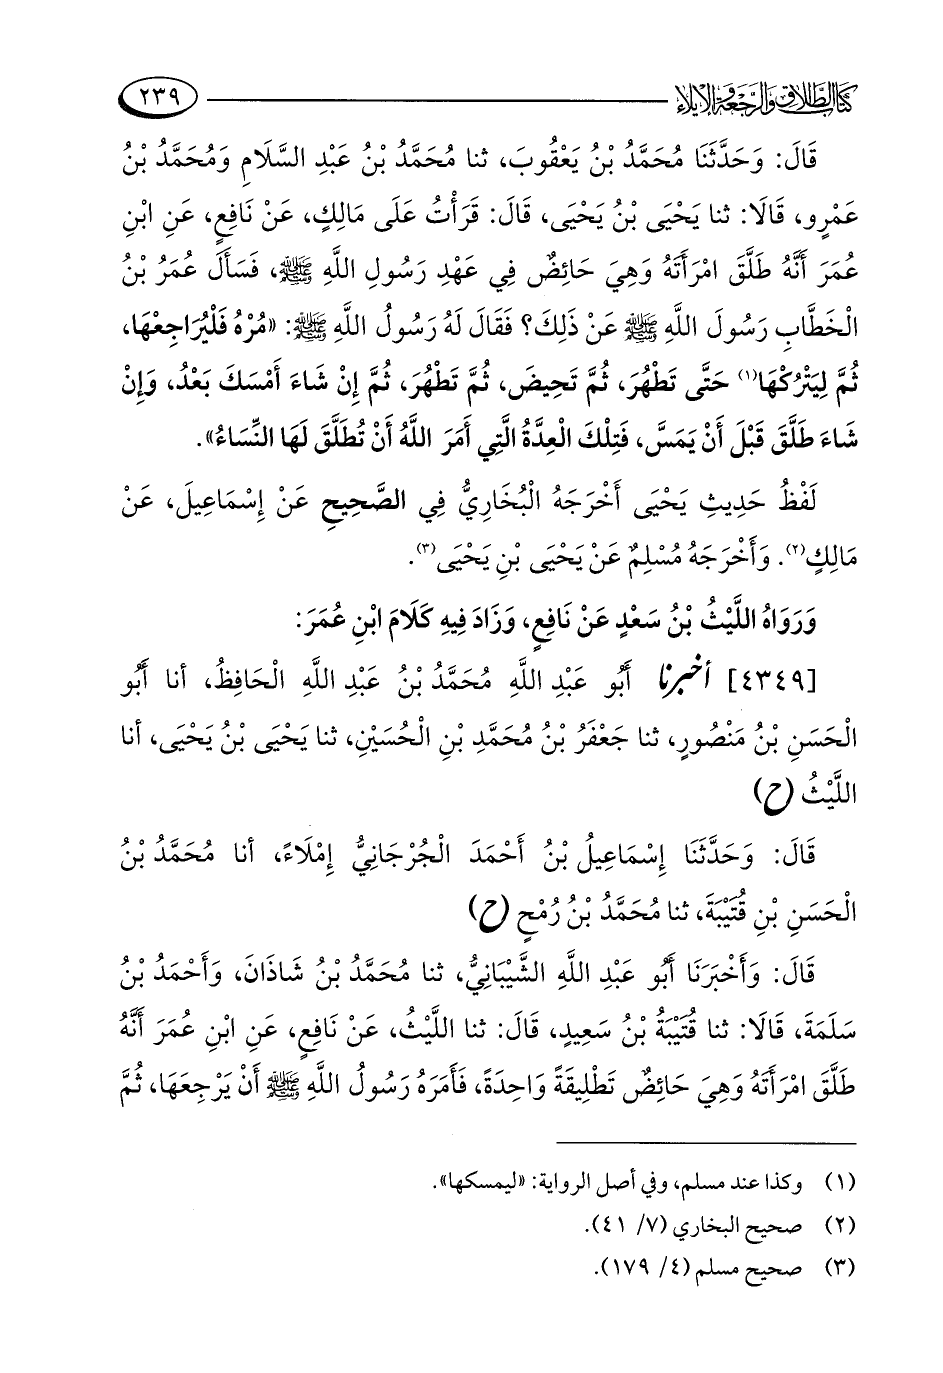 كتاب الطلاق والرجعة والإيلاء ٢٣٩
قَالَ: وَحَدَّثَنَا مُحَمَّدُ بْنُ يَعْقُوبَ، ثنا مُحَمَّدُ بْنُ عَبْدِ السَّلَامِ وَمُحَمَّدُ بْنُ
عَمْرٍو، قَالَا: ثنا يَحْيَى بْنُ يَحْيَى، قَالَ: قَرَأْتُ عَلَى مَالِكٍ، عَنْ نَافِعٍ، عَنِ ابْنِ
عُمَرَ أَنَّهُ طَلَّقَ امْرَأَتَهُ وَهِيَ حَائِضٌ فِي عَهْدِ رَسُولِ اللَّهِ ﷺ، فَسَأَلَ عُمَرُ بْنُ
الْخَطَّابِ رَسُولَ اللَّهِ ﷺ عَنْ ذَلِكَ؟ فَقَالَ لَهُ رَسُولُ اللَّهِ ﷺ: «مُرْهُ فَلْيُرَاجِعْهَا،
ثُمَّ لِيَتْرُكْهَا(١) حَتَّى تَطْهُرَ، ثُمَّ تَحِيضَ، ثُمَّ تَطْهُرَ، ثُمَّ إِنْ شَاءَ أَمْسَكَ بَعْدُ، وَإِنْ
شَاءَ طَلَّقَ قَبْلَ أَنْ يَمَسَّ، فَتِلْكَ الْعِدَّةُ الَّتِي أَمَرَ اللَّهُ أَنْ تُطَلَّقَ لَهَا النِّسَاءُ».
لَفْظُ حَدِيثِ يَحْيَى أَخْرَجَهُ الْبُخَارِيُّ فِي الصَّحِيحِ عَنْ إِسْمَاعِيلَ، عَنْ
مَالِكٍ(٢). وَأَخْرَجَهُ مُسْلِمٌ عَنْ يَحْيَى بْنِ يَحْيَى(٣).
وَرَوَاهُ اللَّيْثُ بْنُ سَعْدٍ عَنْ نَافِعٍ، وَزَادَ فِيهِ كَلَامَ ابْنِ عُمَرَ:
[٤٣٤٩] أخبرنا أَبُو عَبْدِ اللَّهِ مُحَمَّدُ بْنُ عَبْدِ اللَّهِ الْحَافِظُ، أنا أَبُو
الْحَسَنِ بْنُ مَنْصُورٍ، ثنا جَعْفَرُ بْنُ مُحَمَّدِ بْنِ الْحُسَيْنِ، ثنا يَحْيَى بْنُ يَحْيَى، أنا
اللَّيْثُ (ح)
قَالَ: وَحَدَّثَنَا إِسْمَاعِيلُ بْنُ أَحْمَدَ الْجُرْجَانِيُّ إِمْلَاءً، أنا مُحَمَّدُ بْنُ
الْحَسَنِ بْنِ قُتَيْبَةَ، ثنا مُحَمَّدُ بْنُ رُمْحٍ (ح)
قَالَ: وَأَخْبَرَنَا أَبُو عَبْدِ اللَّهِ الشَّيْبَانِيُّ، ثنا مُحَمَّدُ بْنُ شَاذَانَ، وَأَحْمَدُ بْنُ
سَلَمَةَ، قَالَا: ثنا قُتَيْبَةُ بْنُ سَعِيدٍ، قَالَ: ثنا اللَّيْثُ، عَنْ نَافِعٍ، عَنِ ابْنِ عُمَرَ أَنَّهُ
طَلَّقَ امْرَأَتَهُ وَهِيَ حَائِضٌ تَطْلِيقَةً وَاحِدَةً، فَأَمَرَهُ رَسُولُ اللَّهِ ﷺ أَنْ يَرْجِعَهَا، ثُمَّ
(١) وكذا عند مسلم، وفي أصل الرواية: «ليمسكها».
(٢) صحيح البخاري (٧/ ٤١).
(٣) صحيح مسلم (٤/ ١٧٩).